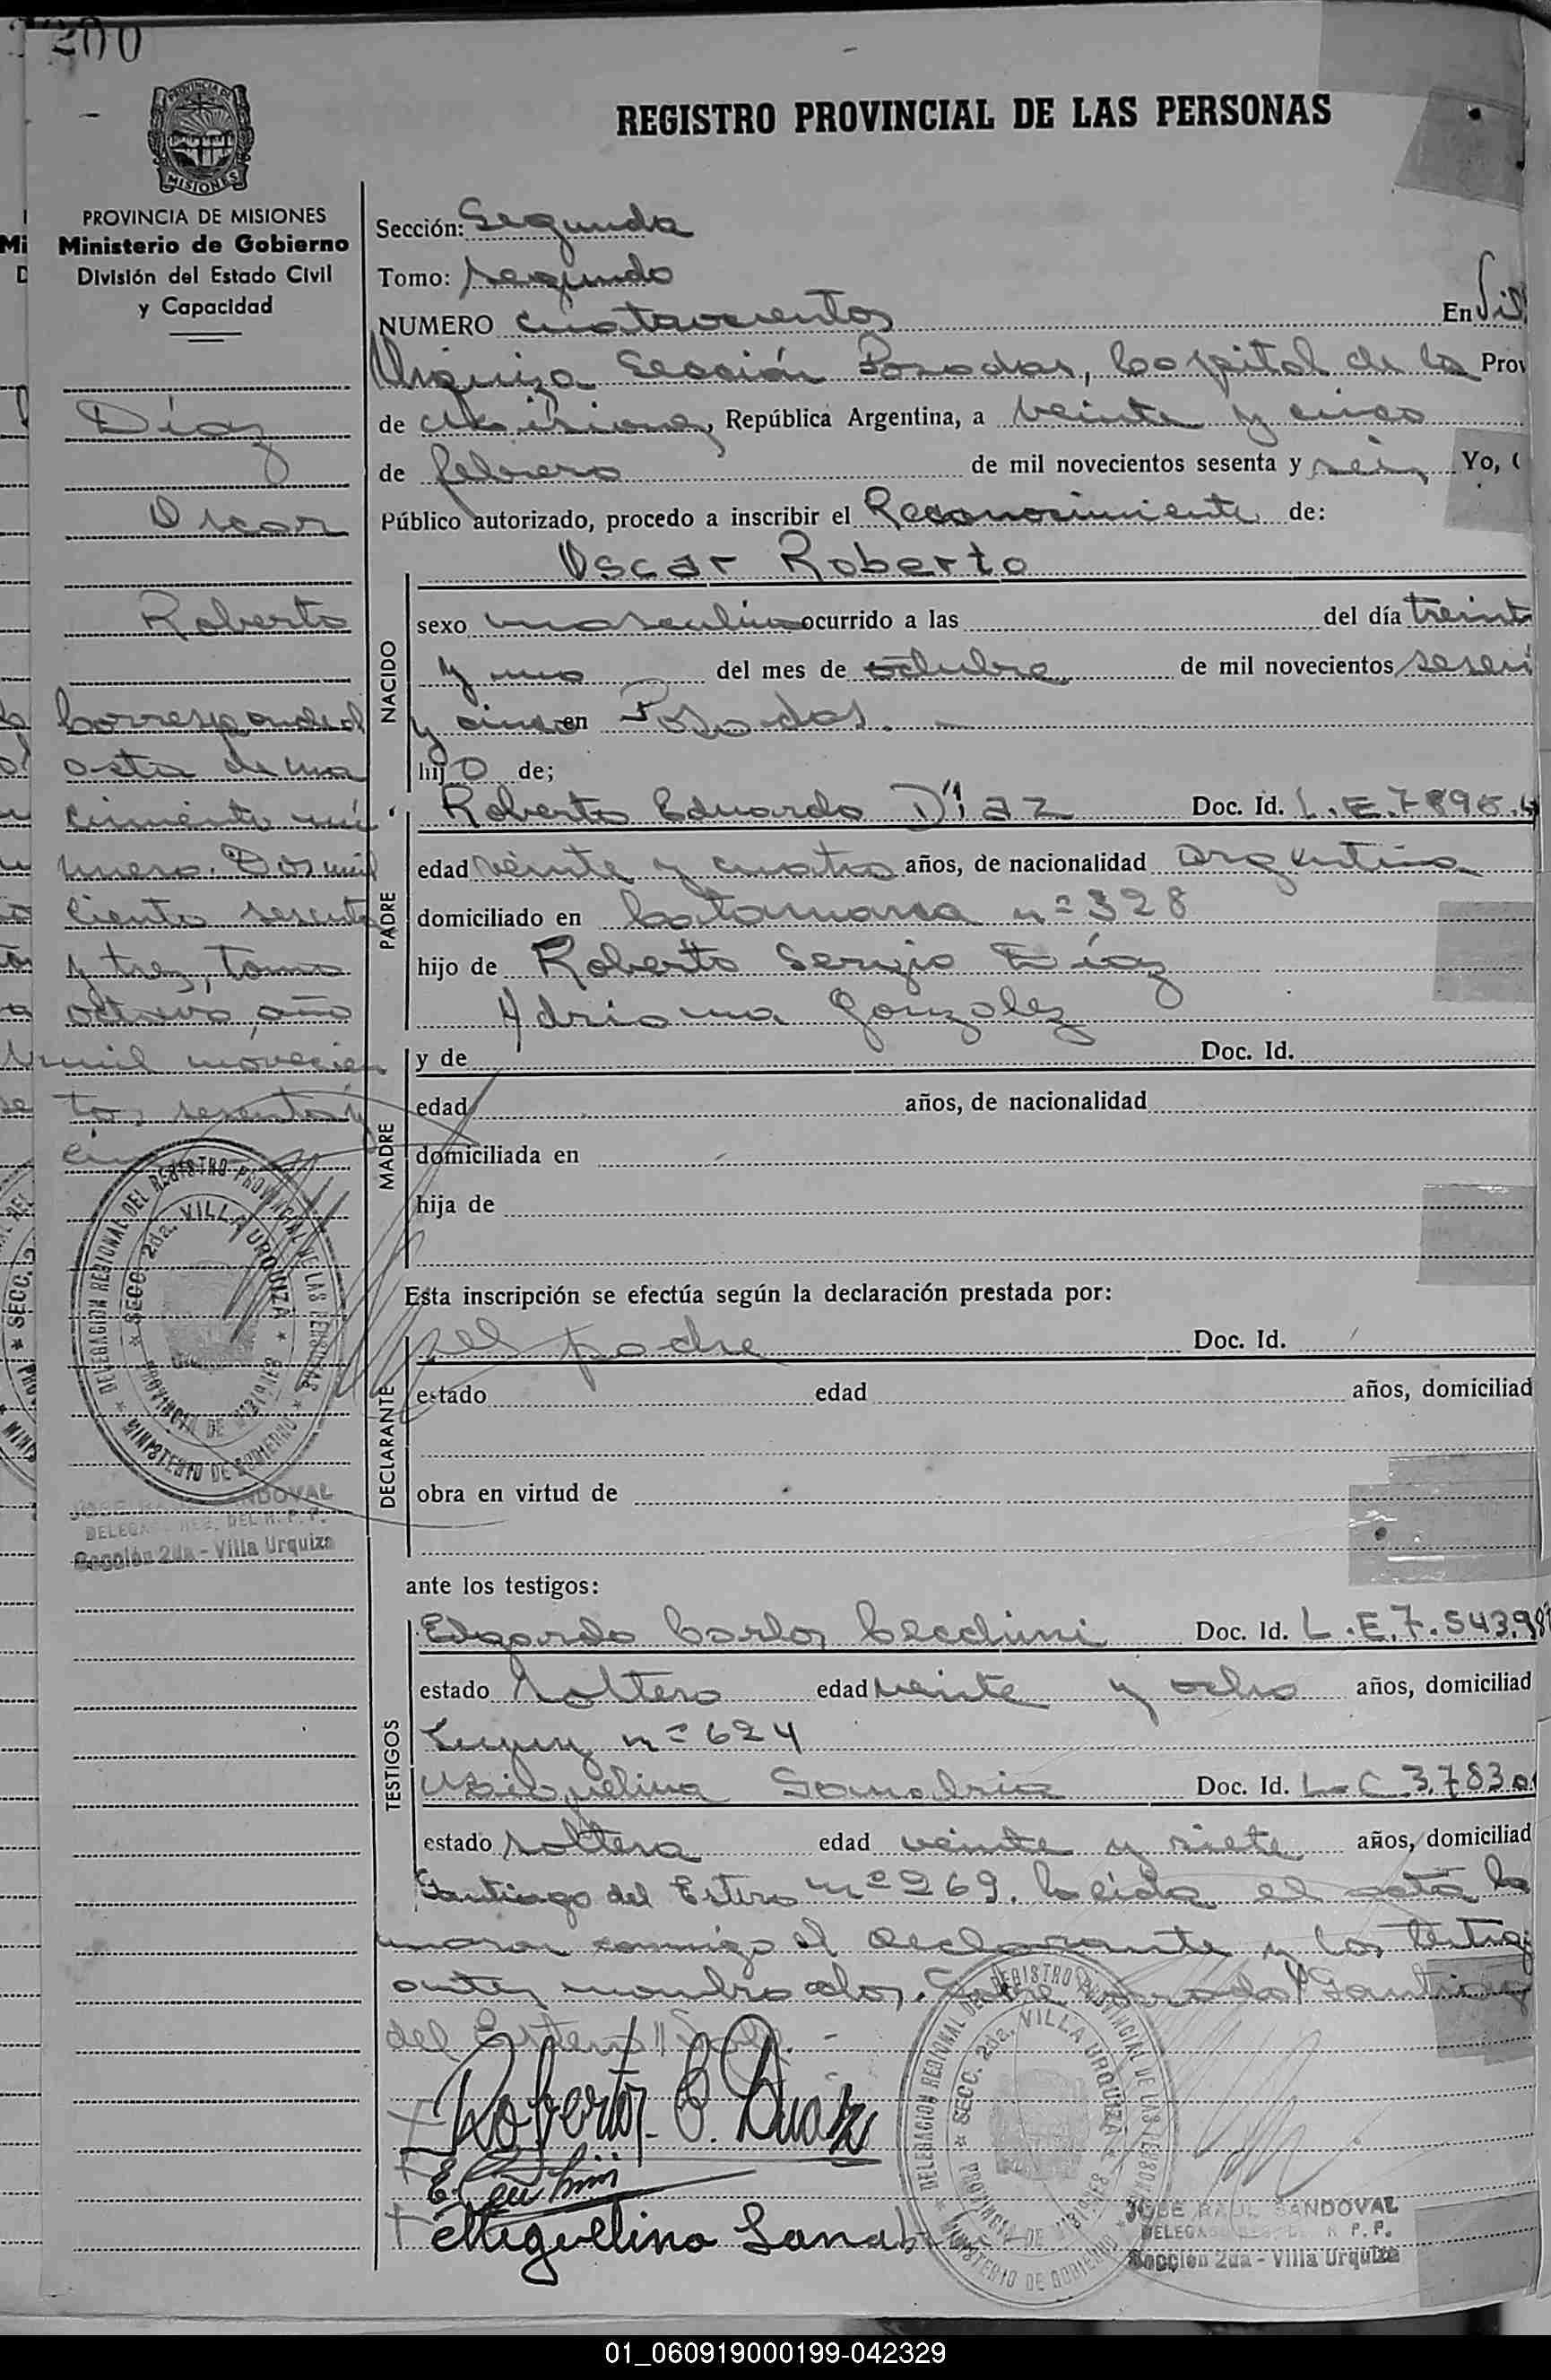 200
PROVINCIA DE MISIONES
Ministerio de Gobierno
División del Estado Civil
y Capacidad
Díaz
Oscar
Roberto
Corresponde al
acta de na
cimiento nú
mero. Dos mil
ciento sesenta
y tres, tomo
octavo, año
mil novecien
tos sesenta y
cinco
REGISTRO PROVINCIAL DE LAS PERSONAS
Sección: Segunda
Tomo: segundo
NUMERO cuatrocientos En Vil
Urquiza Sección Posadas, Capital de la Prov
de Misiones, República Argentina, a veinte y cinco
de febrero de mil novecientos sesenta y seis Yo,
Público autorizado, procedo a inscribir el Reconocimiento de:
Oscar Roberto
NACIDO
sexo masculino ocurrido a las del día treint
y uno del mes de octubre de mil novecientos sesen
y cinco en Posadas.
hijo de;
PADRE
Roberto Eduardo Díaz Doc. Id. L.E.7898.
edad veinte y cuatro años, de nacionalidad argentina
domiciliado en Catamarca nº 328
hijo de Roberto Sergio Díaz
Adriana Gonzalez
MADRE
y de Doc. Id.
edad años, de nacionalidad
domiciliada en
hija de
Esta inscripción se efectúa según la declaración prestada por:
DECLARANTE
el padre Doc. Id.
estado edad años, domiciliad
obra en virtud de
ante los testigos:
TESTIGOS
Edgardo Carlos Cecchini Doc. Id. L.E.7.543.98
estado soltero edad veinte y ocho años, domiciliad
nº 624
Miguelina Sanabria Doc. Id. L.C 3.783.0
estado soltera edad veinte y siete años, domiciliad
Santiago del Estero nº 269. Leída el acta la
maron conmigo el declarante y los testig
antes nombrados. Sobre raspado "Santiago
del Estero" Vale.
Roberto E. Diaz
E. Cecchini
Miguelina Sanab
DELEGACION REGIONAL DEL REGISTRO PROVINCIAL DE LAS PERSONAS
SECC. 2da. VILLA URQUIZA
PROVINCIA DE MISIONES
MINISTERIO DE GOBIERNO
JOSE RAUL SANDOVAL
DELEGADO REG. DEL R. P. P.
Sección 2da - Villa Urquiza
DELEGACION REGIONAL DEL REGISTRO PROVINCIAL DE LAS PERSONAS
SECC. 2da. VILLA URQUIZA
PROVINCIA DE MISIONES
MINISTERIO DE GOBIERNO
JOSE RAUL SANDOVAL
DELEGADO REG. DEL R. P. P.
Sección 2da - Villa Urquiza
01_060919000199-042329